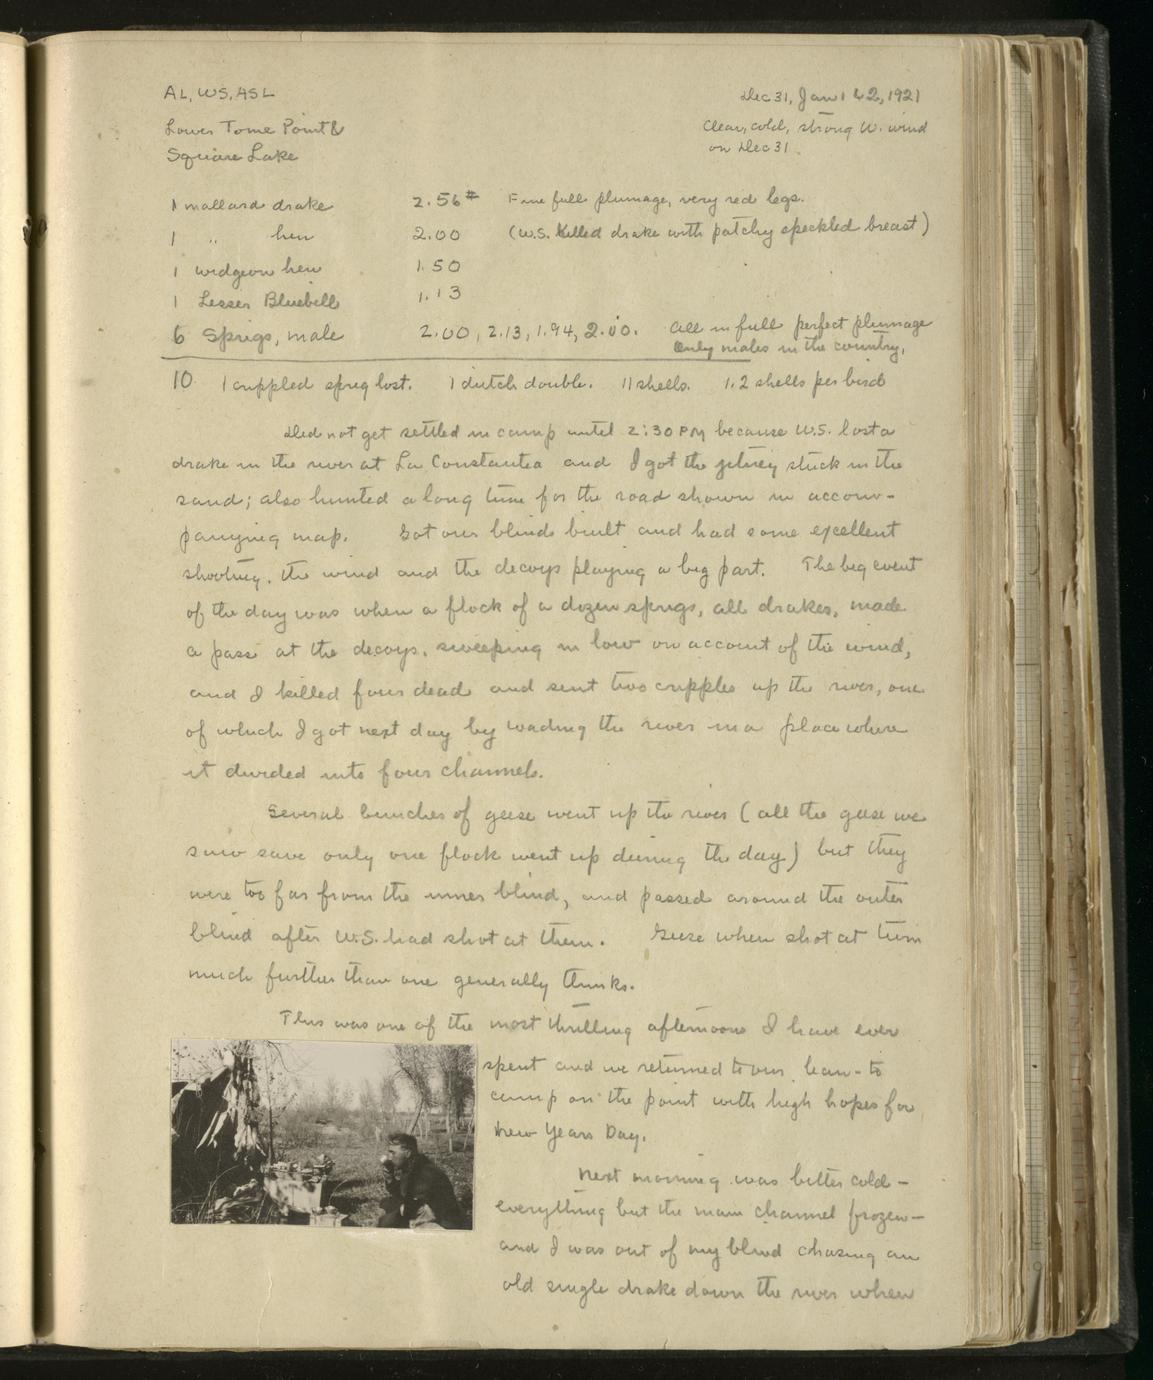 AL, WS, ASL
Dec 31, Jan 1 & 2, 1921
Lower Tome Point &
Clear, cold, strong W. wind
Square Lake
on Dec 31.
1 mallard drake 2.56# Fine full plumage, very red legs.
1 " hen 2.00 (W.S. killed drake with patchy speckled breast)
1 widgeon hen 1.50
1 Lesser Bluebill 1.13
6 Sprigs, male 2.00, 2.13, 1.94, 2.00. All in full perfect plumage
Only males in the country.
10 1 crippled sprig lost. 1 dutch double. 11 shells. 1.2 shells per bird
Did not get settled in camp until 2:30 PM because W.S. lost a
drake in the river at La Constantia and I got the jitney stuck in the
sand; also hunted a long time for the road shown in accom-
panying map. Got our blinds built and had some excellent
shooting, the wind and the decoys playing a big part. The big event
of the day was when a flock of a dozen sprigs, all drakes, made
a pass at the decoys, sweeping in low on account of the wind,
and I killed four dead and sent two cripples up the river, one
of which I got next day by wading the river in a place where
it divided into four channels.
Several bunches of geese went up the river (all the geese we
saw save only one flock went up during the day) but they
were too far from the inner blind, and passed around the outer
blind after W.S. had shot at them. Geese when shot at turn
much further than one generally thinks.
This was one of the most thrilling afternoons I have ever
spent and we returned to our lean-to
camp on the point with high hopes for
New Years Day.
Next morning was bitter cold -
everything but the main channel frozen -
and I was out of my blind chasing an
old single drake down the river when